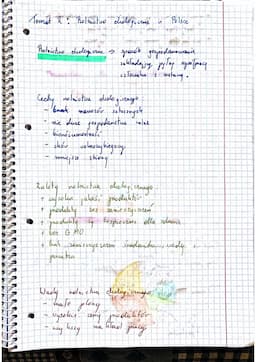 Temat 2: Rolnictwo ekologiczne w Polsce
Rolnictwo ekologiczne → sposób gospodarowania
zakładający
człowieka z naturą.
Cechy rolnictwa ekologicznego:
- brak nawozów sztucznych
- nie duże gospodarstwa rolne
- bioróżnorodność
- sków
- mniejsze
Zalety rolnictwa ekologicznego:
+ wysoka jakość produktów
+ produkty bez zanieczyszczeń
+ produkty są bezpieczne dla zdrowia
+ bez GMO
+ brak zanieczyszczeń środowiska, wody i
powietrza
Wady rolnictwa ekologicznego:
- małe plony
- wysokie ceny produktów
- pracy